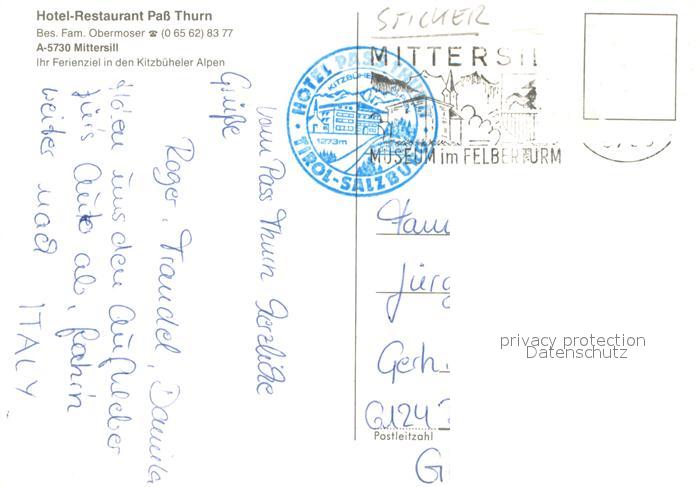 Hotel-Restaurant Paß Thurn
Bes. Fam. Obermoser ☎ (0 65 62) 83 77
A-5730 Mittersill
Ihr Ferienziel in den Kitzbüheler Alpen
STICKER
MITTERSIL
MUSEUM im FELBERTURM
HOTEL PASS THURN
KITZBÜHEL
1273m
TIROL-SALZBURG
vom Pass Thurn Herzliche
Grüße
Roger, Traudel, Daniela
Holen uns den Aufkleber
für's Auto ab, fahrn
weiter nach
ITALY
Fam
Jürg
Gerh
6124
Postleitzahl
G
privacy protection
Datenschutz